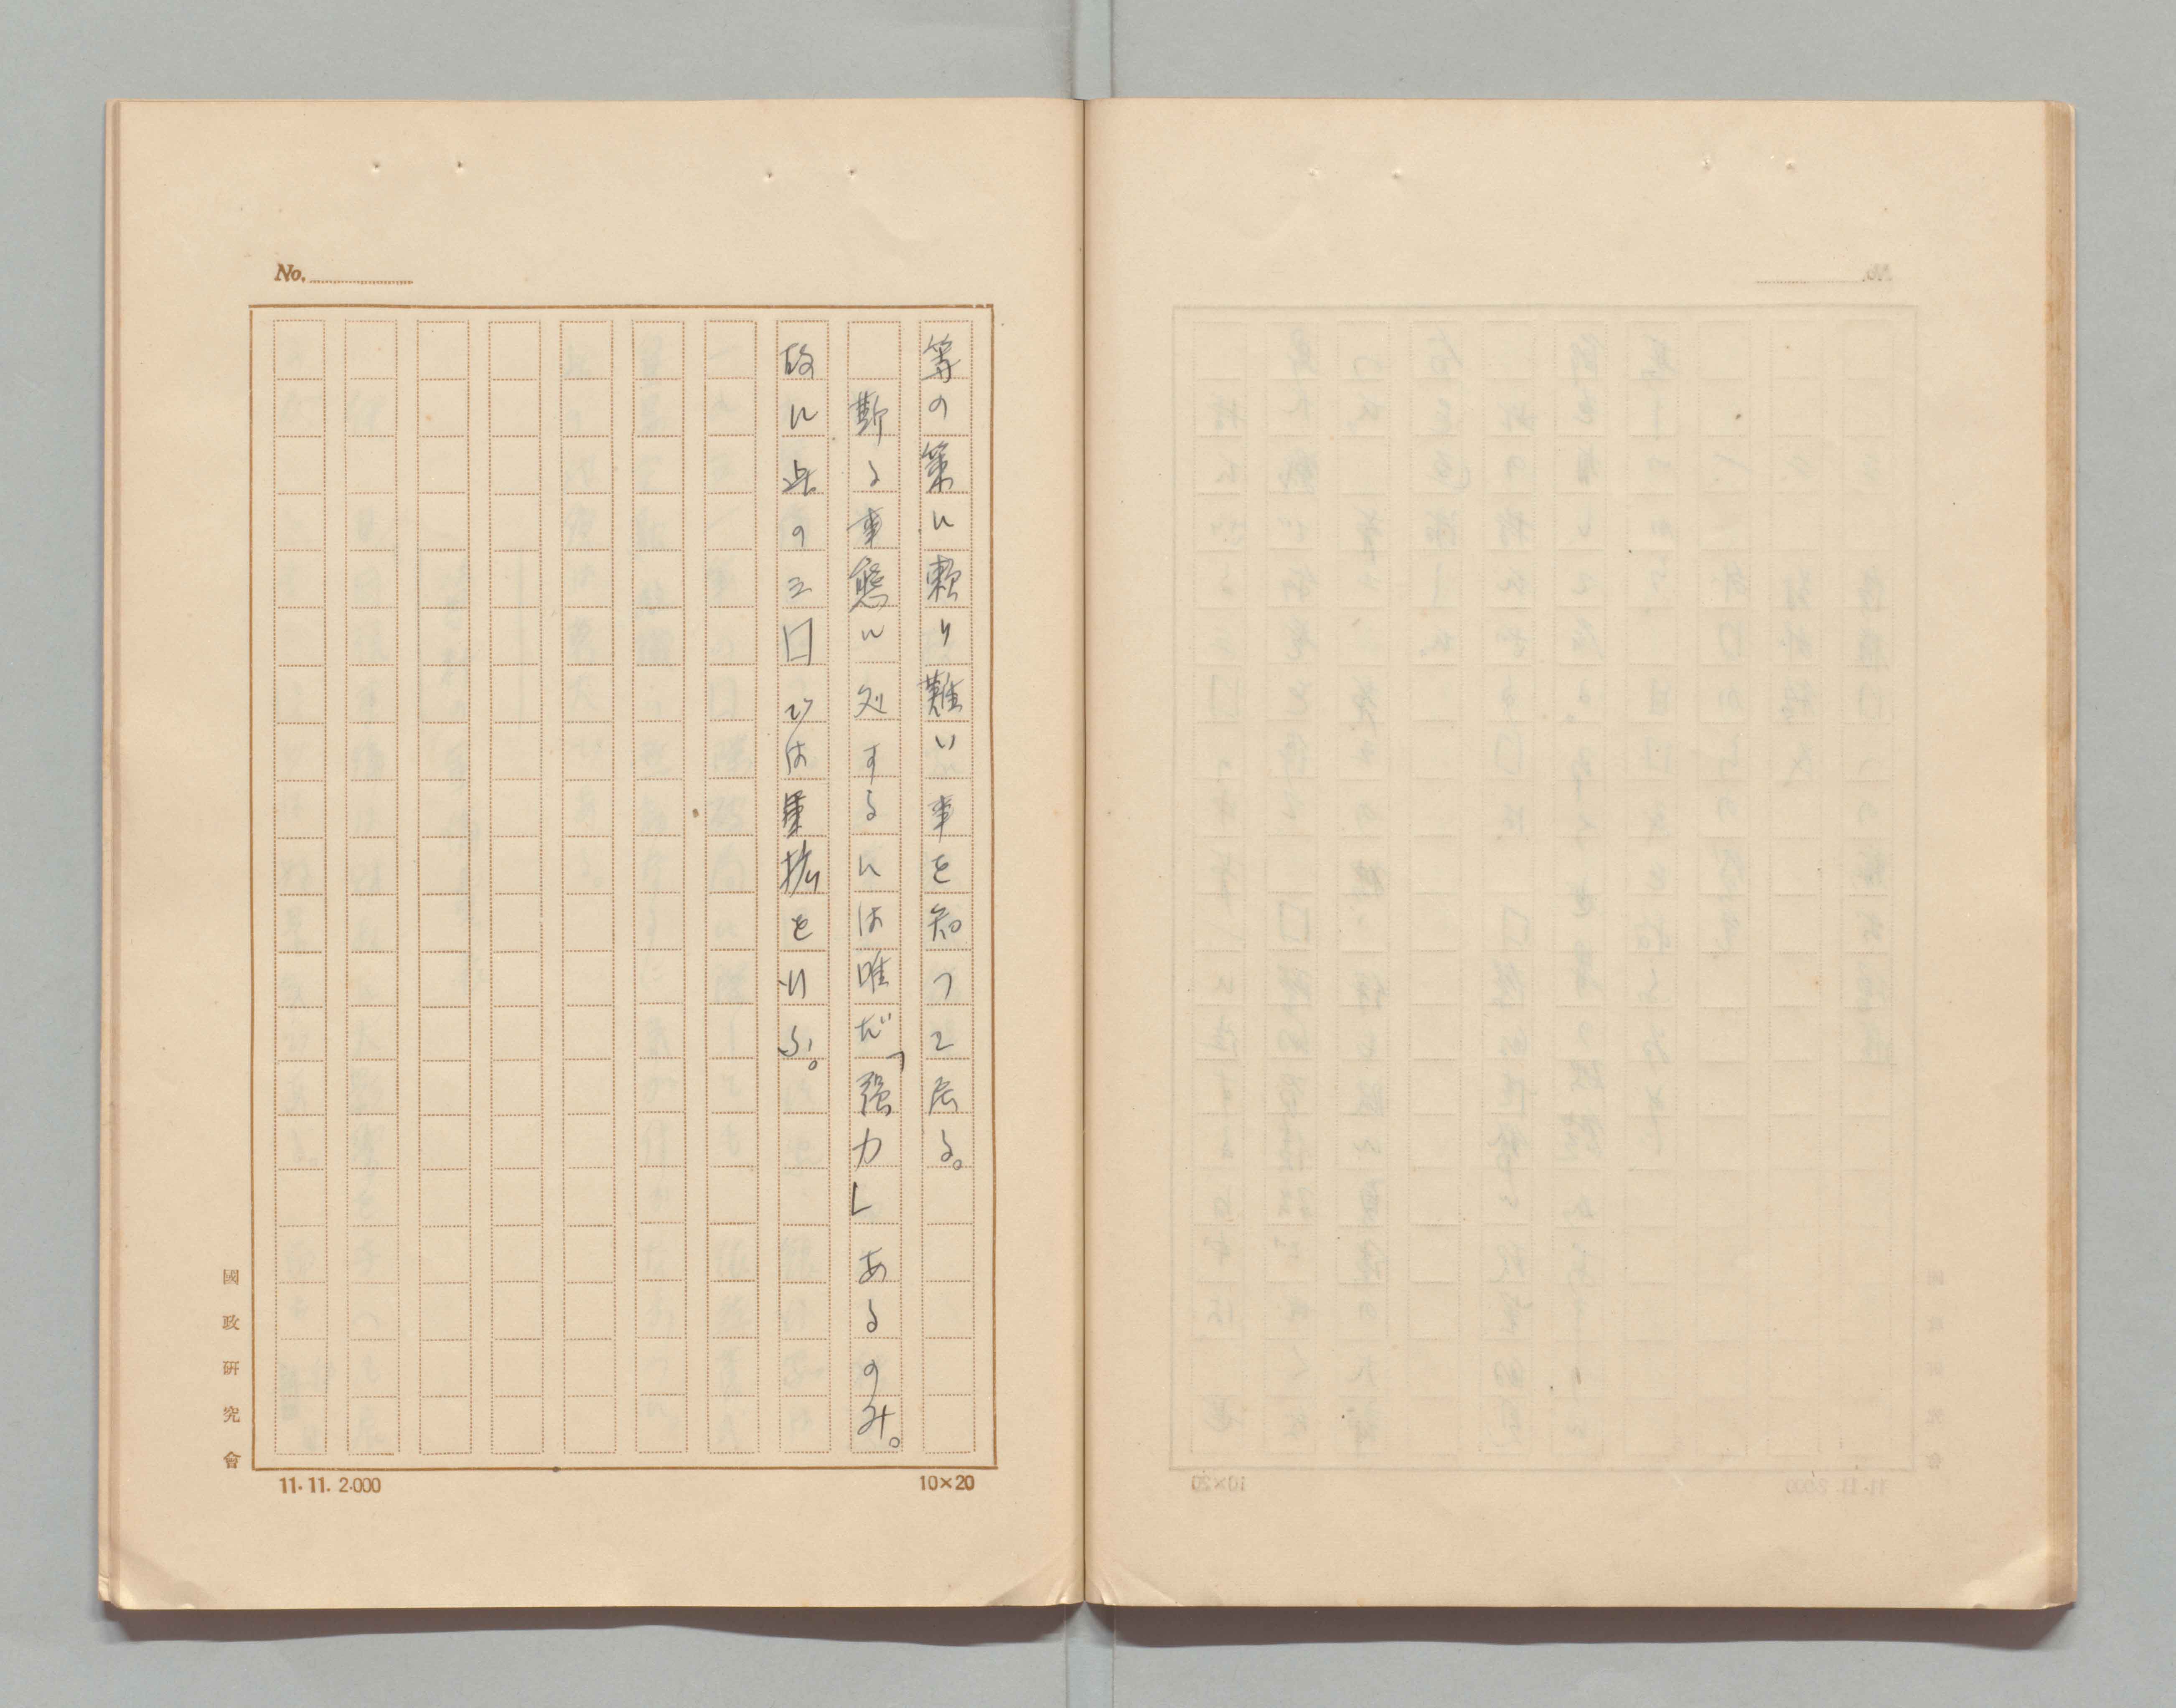 No.
等の策に頼り難い事を知つて居る。
斯る事態に処するには唯だ「强力」あるのみ。
故に此の三口では軍拡をいふ。
國政研究會
11.11.2.000
10×20